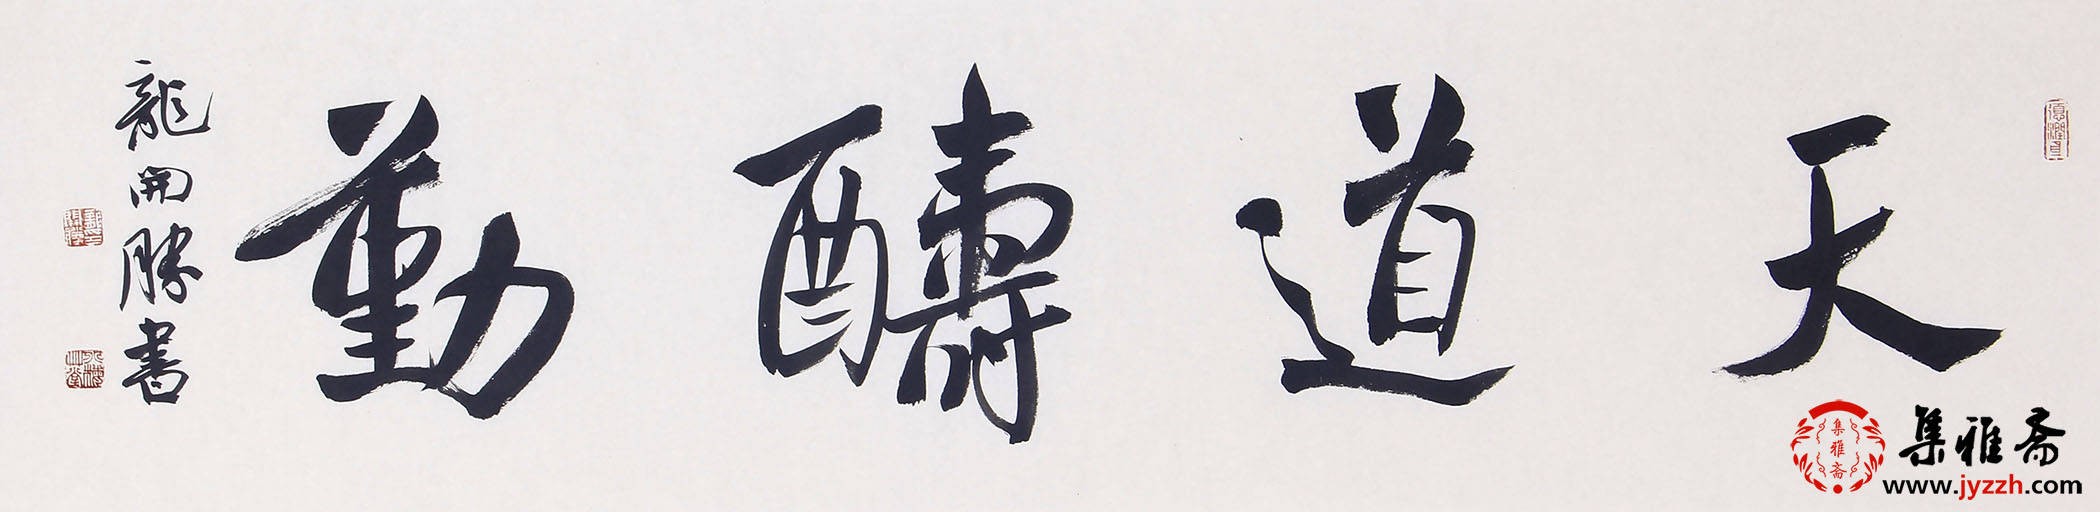 天道酬勤
龍開勝書
集雅斋
集雅斋
www.jyzzh.com